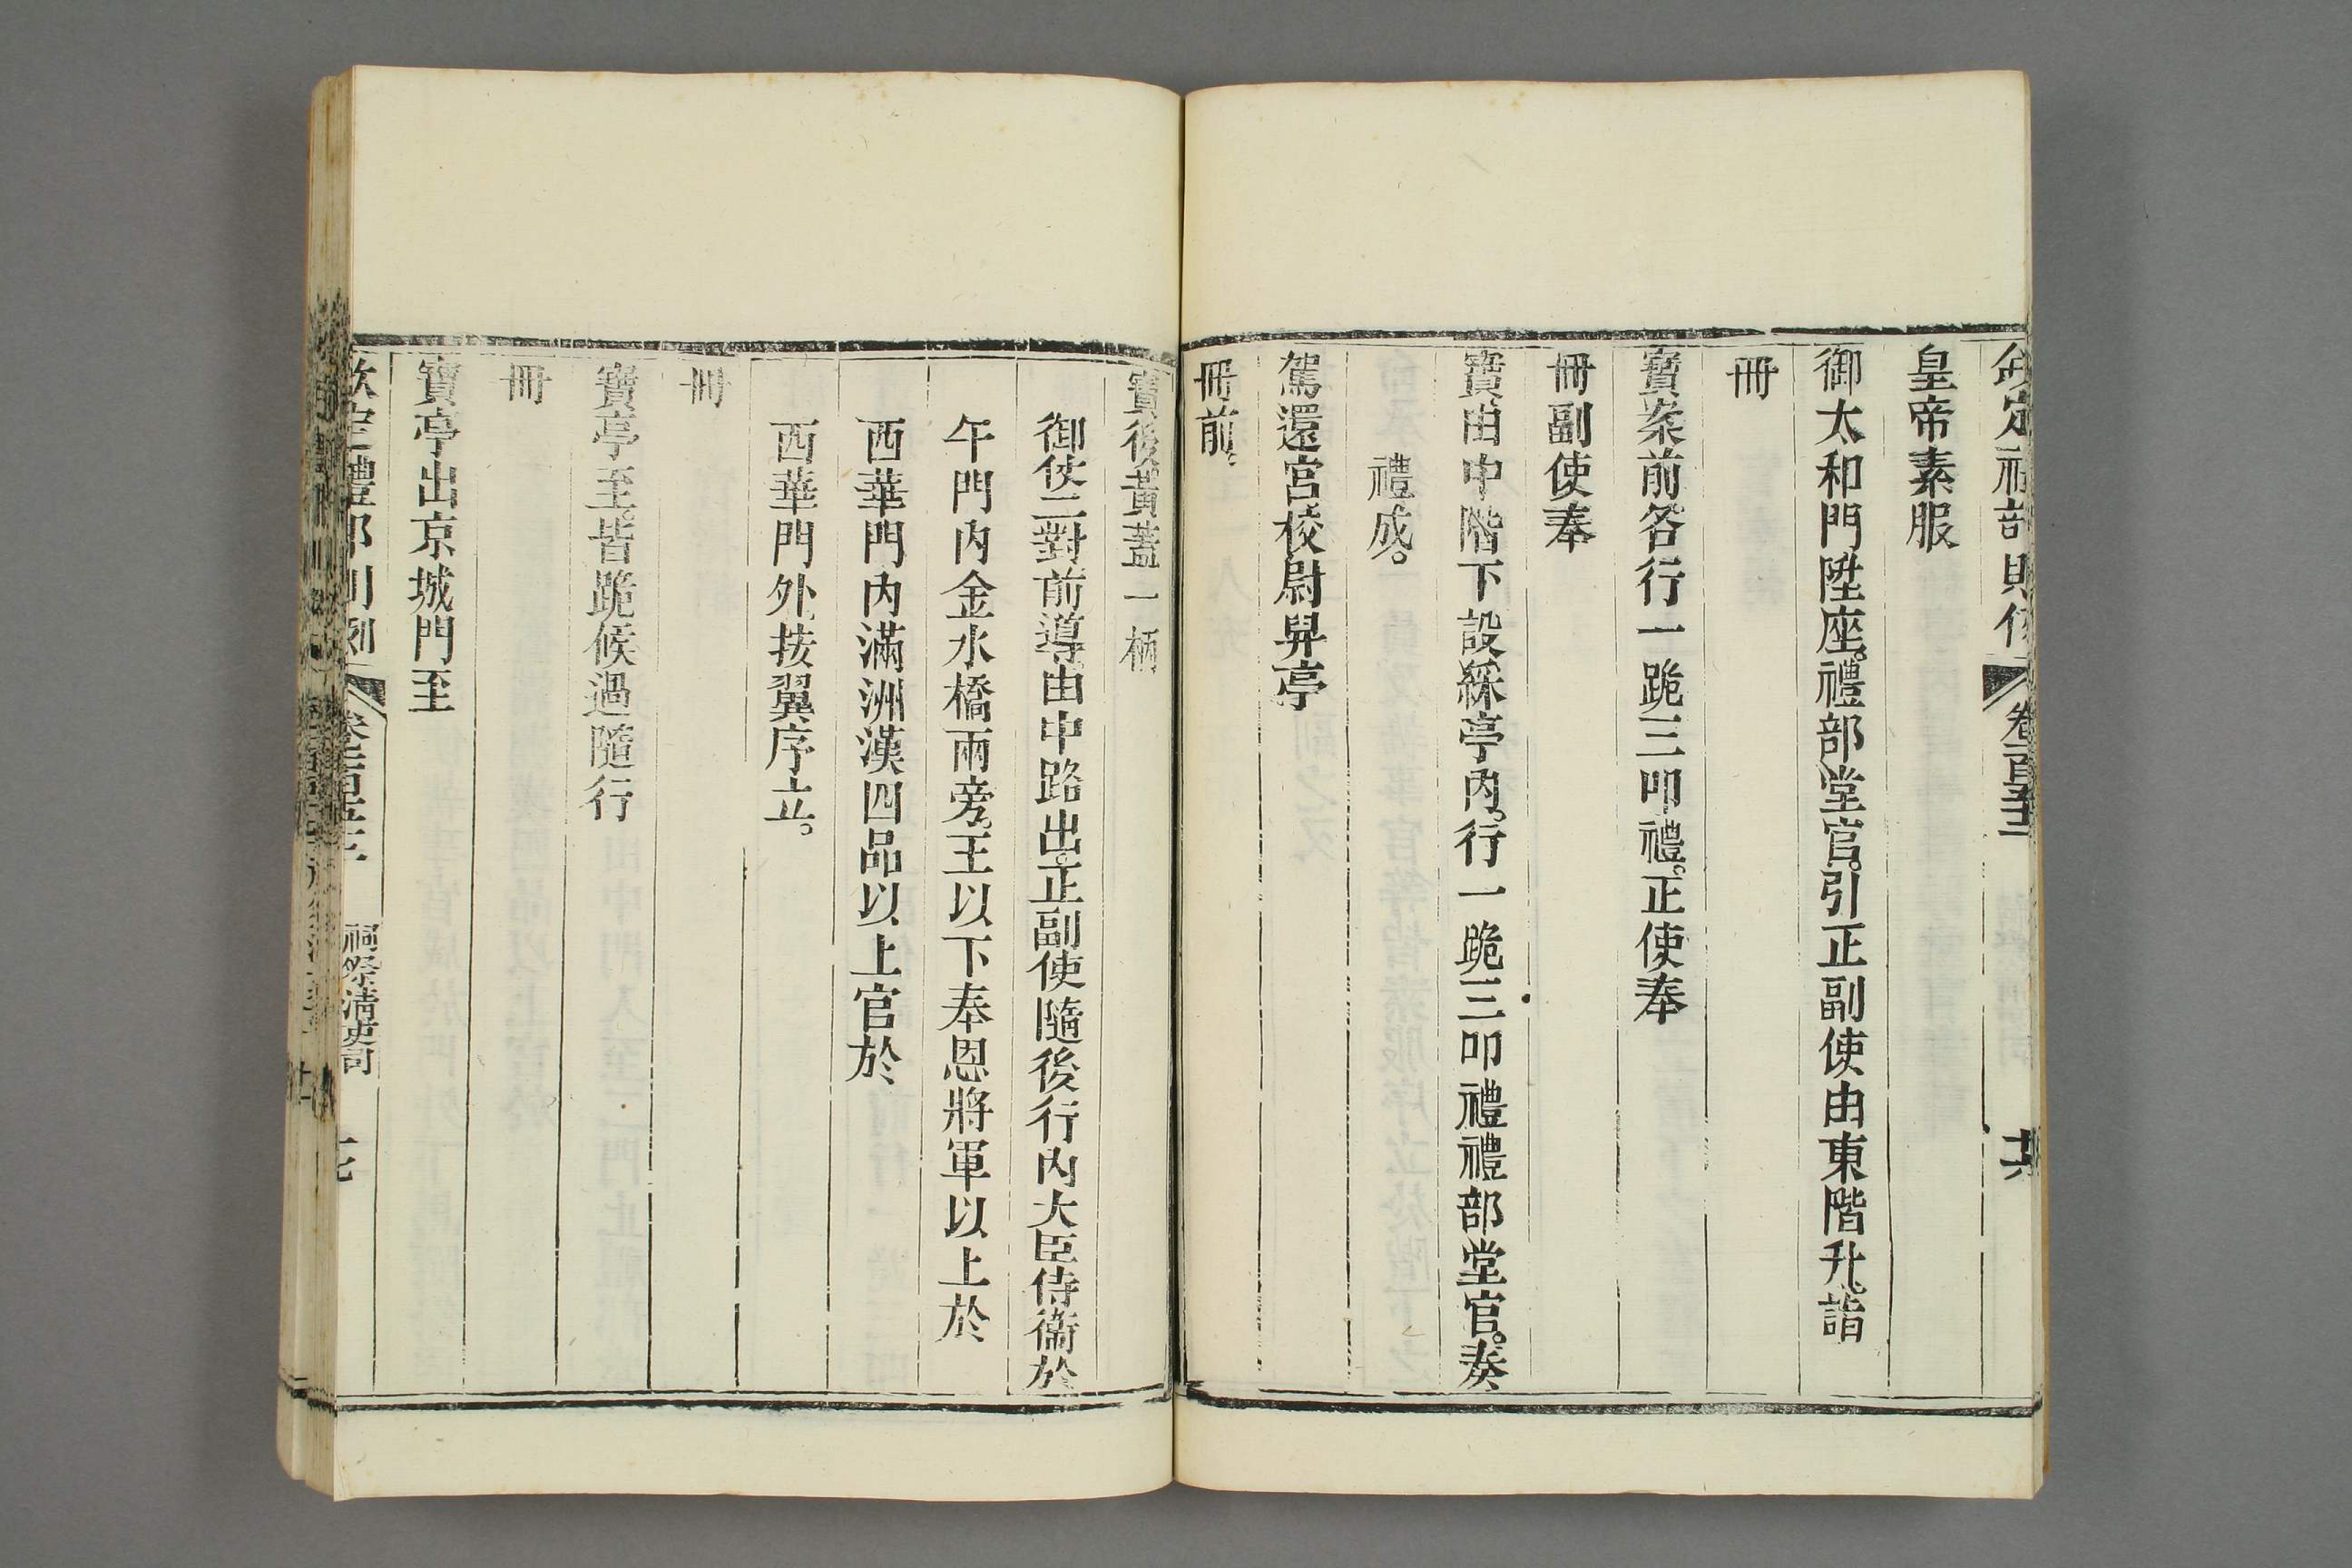 欽定禮部則例 卷一百五十三 十六
皇帝素服
御太和門陞座。禮部堂官。引正副使由東階升。詣
冊
寶案前。各行一跪三叩禮。正使奉
冊副使奉
寶由中階下設綵亭內。行一跪三叩禮禮部堂官。奏
禮成。
駕還宮校尉舁亭
冊前。
寶後黃蓋一柄
御仗二對前導。由中路出。正副使隨後行內大臣侍衞於
午門內金水橋兩旁。王以下奉恩將軍以上於
西華門內滿洲漢四品以上官於
西華門外。按翼序立。
冊
寶亭至。皆跪候過隨行
冊
寶亭出京城門至
欽定禮部則例 卷一百五十三 祠祭清吏司 十七